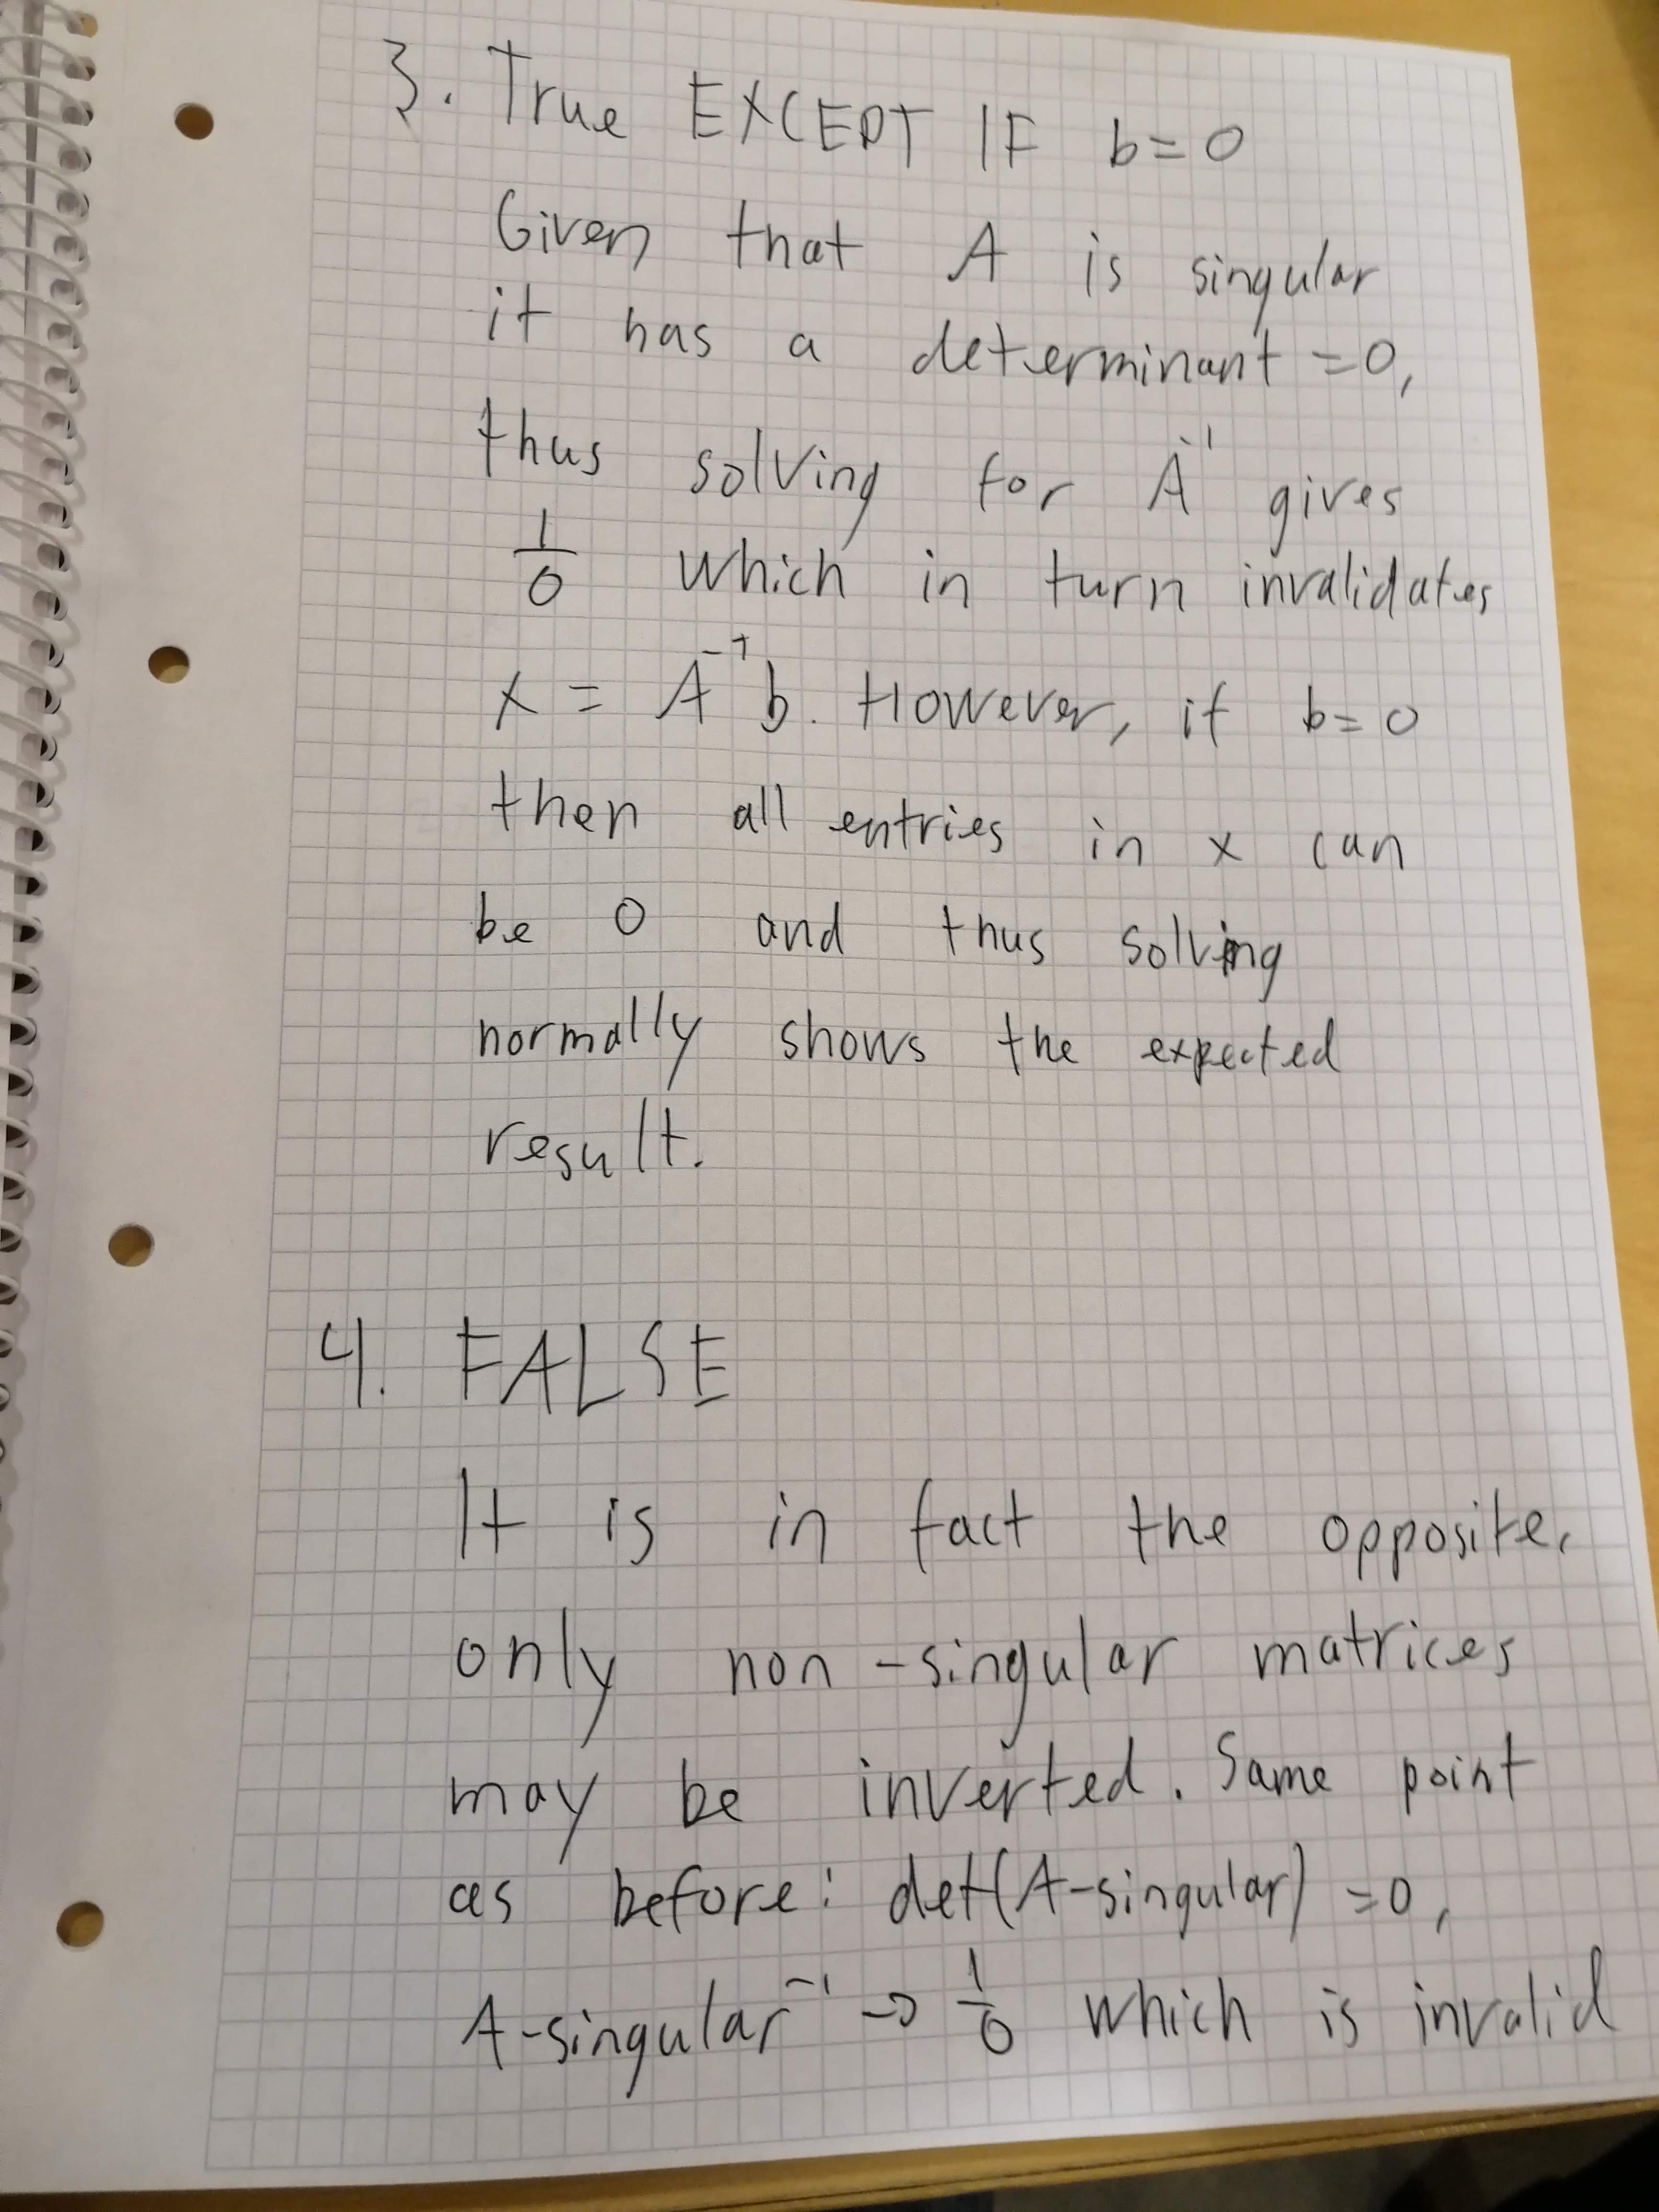 3. True EXCEPT IF b=0
Given that A is singular
it has a determinant =0,
thus solving for A⁻¹ gives
1/0 which in turn invalidates
x = A⁻¹b. However, if b=0
then all entries in x can
be 0 and thus solving
normally shows the expected
result.
4. FALSE
It is in fact the opposite,
only non-singular matrices
may be inverted. Same point
as before: det(A-singular) =0,
A-singular⁻¹ → 1/0 which is invalid